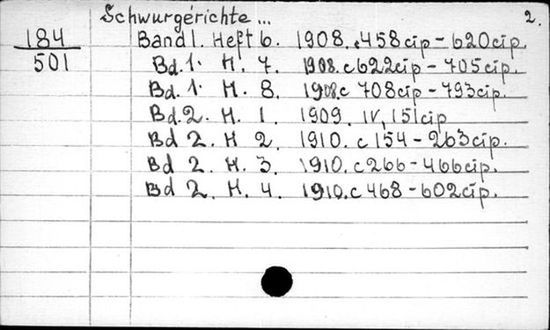 Schwurgerichte... 2.
184 Band 1. Heft 6. 1908. c458 cip-620cip.
501 Bd. 1. H. 7. 1908. c622cip-705cip.
Bd. 1. H. 8. 1908.c 708cip-793cip.
Bd. 2. H. 1. 1909. IV, 151cip
Bd 2. H 2. 1910. c154-263cip.
Bd 2. H. 3. 1910.c266-466cip.
Bd 2. H. 4. 1910.c468-602cip.